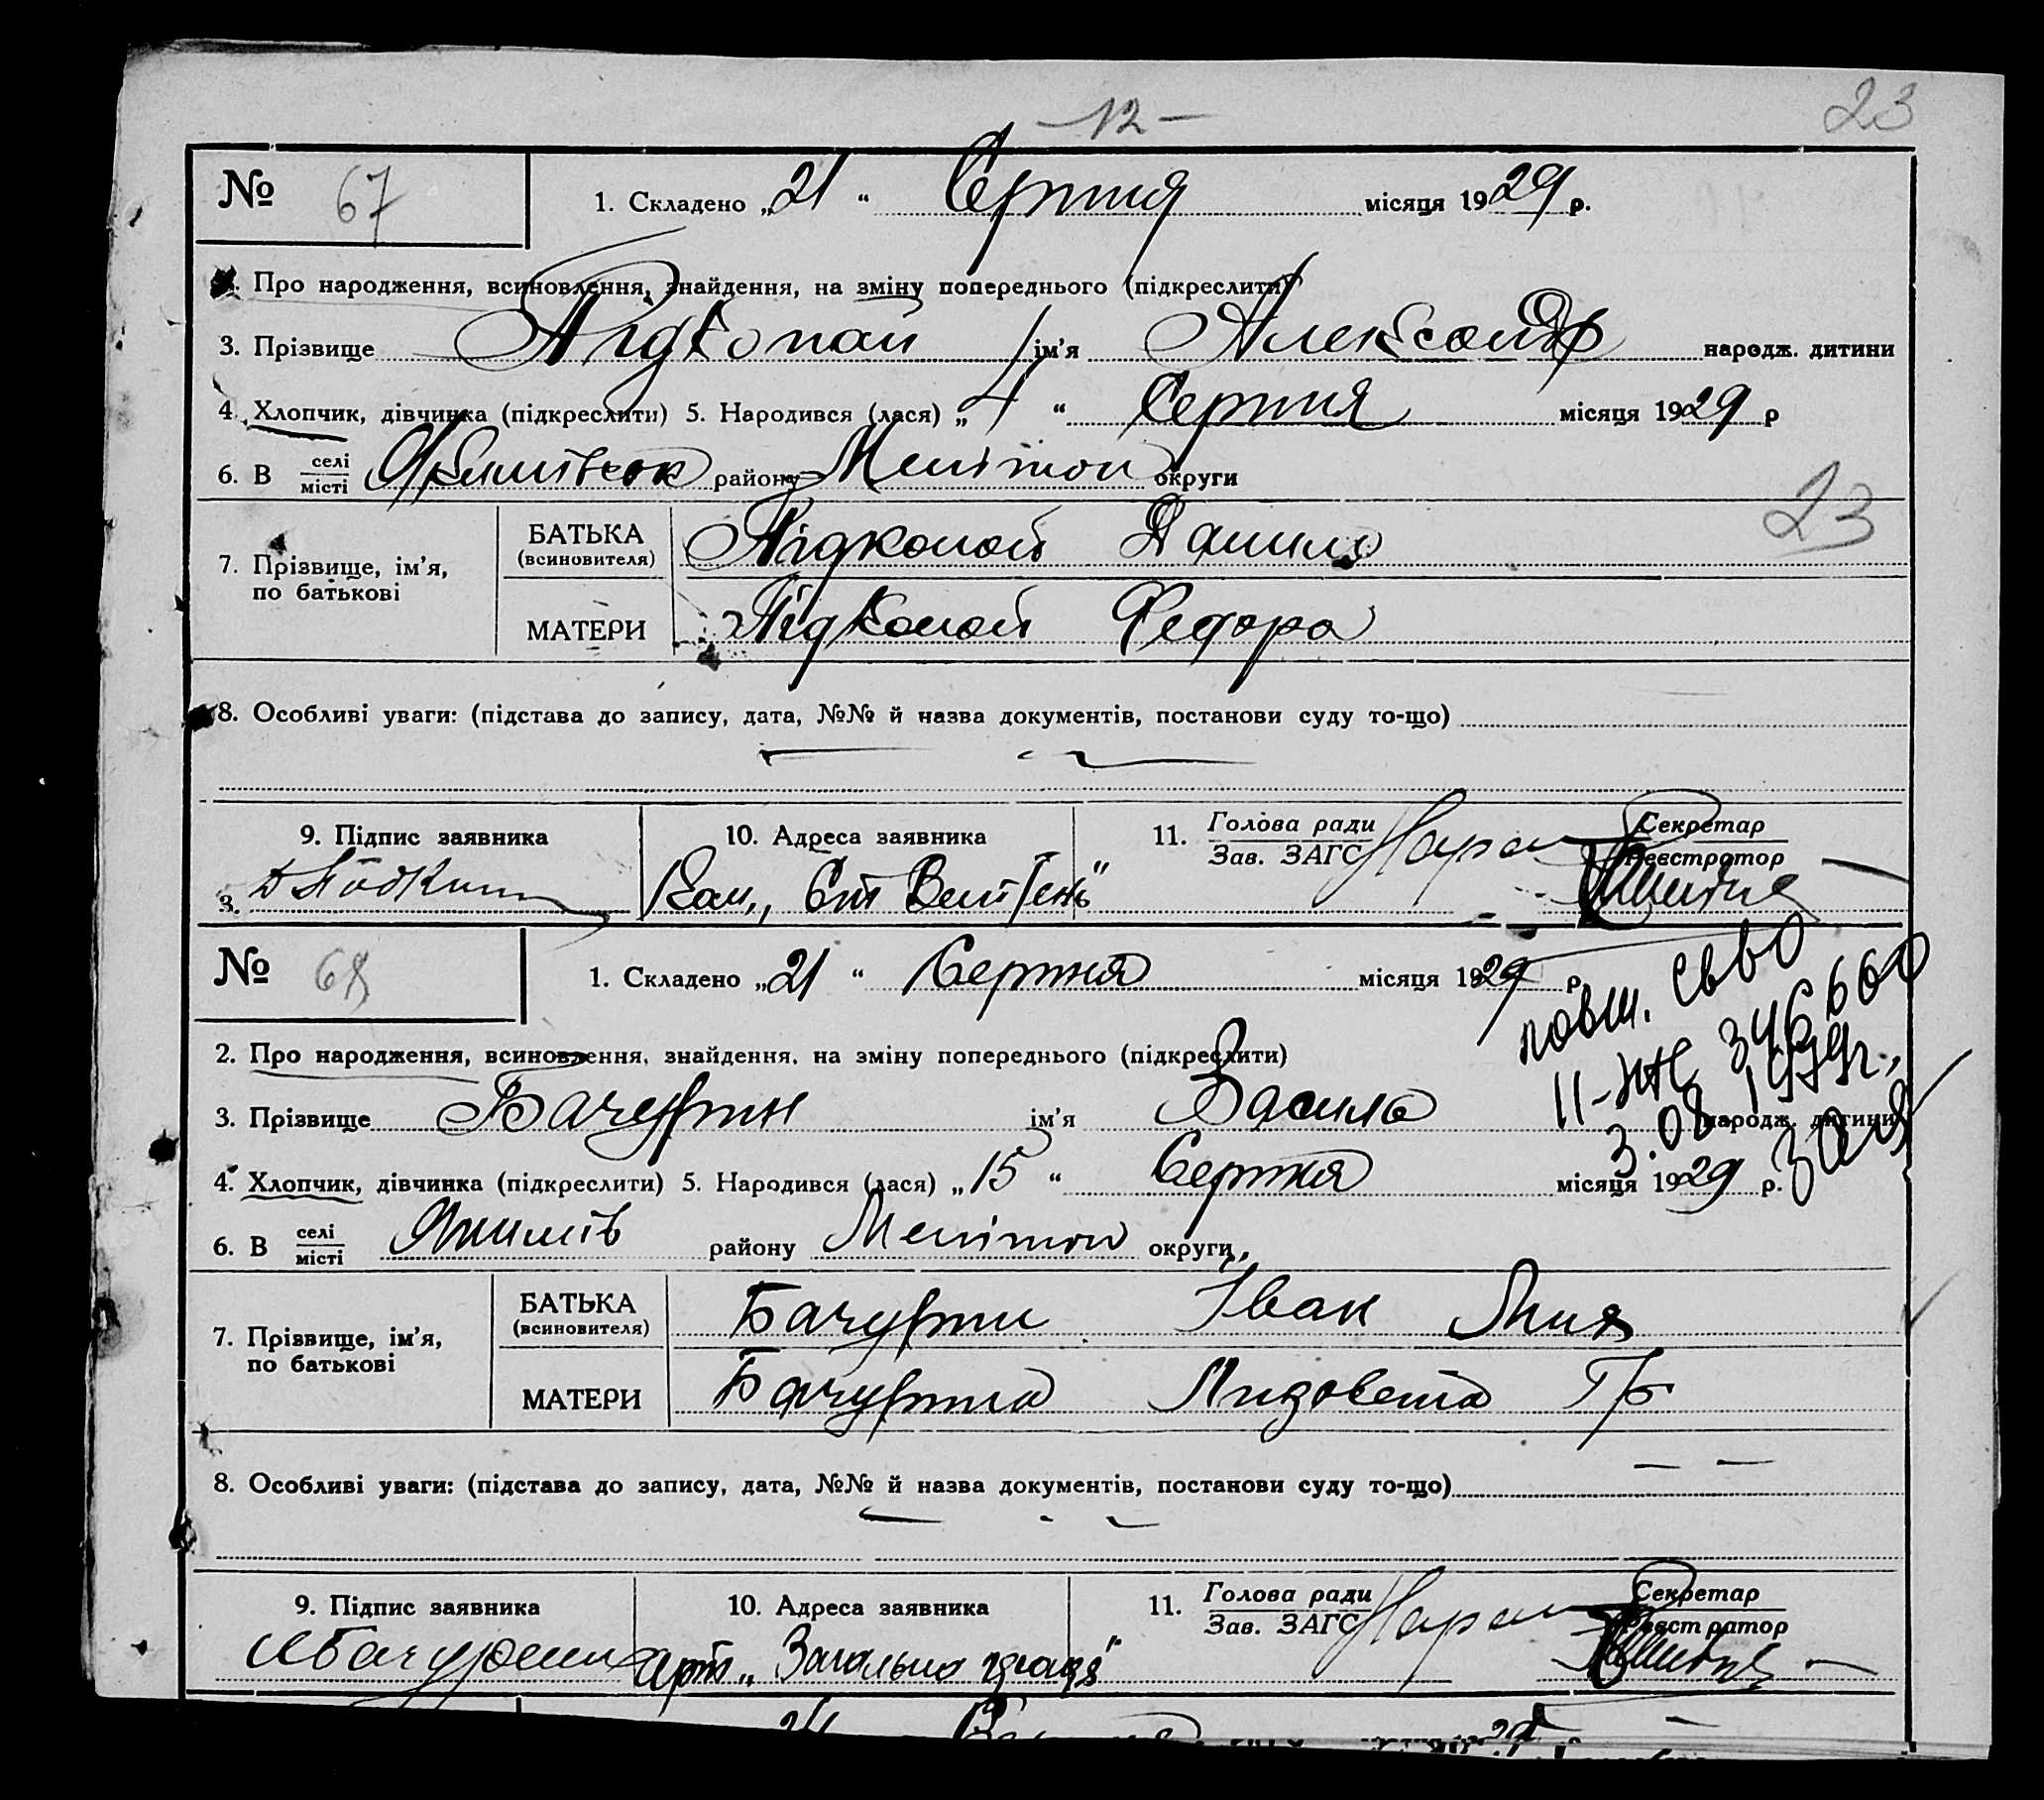 -12-
23
№ 67
1. Складено „21“ Серпня місяця 1929 р.
2. Про народження, всиновлення, знайдення, на зміну попереднього (підкреслити)
3. Прізвище Підкопай ім'я Александр народж. дитини
4. Хлопчик, дівчинка (підкреслити) 5. Народився (лася) „4“ Серпня місяця 1929 р
6. В селі місті району Мелітоп округи
23
7. Прізвище, ім'я, по батькові
БАТЬКА (всиновителя) Підкопай Данило
МАТЕРИ Підкопай Федора
8. Особливі уваги: (підстава до запису, дата, №№ й назва документів, постанови суду то-що)
9. Підпис заявника 10. Адреса заявника 11. Голова ради Зав. ЗАГС Секретар Реєстротор
3.
№ 68
1. Складено „21“ Серпня місяця 1929 р.
повт. св-во
II-ЖС 346660
3.08.1999г.
2. Про народження, всиновлення, знайдення, на зміну попереднього (підкреслити)
3. Прізвище Бачурин ім'я Василь народж. дитини
4. Хлопчик, дівчинка (підкреслити) 5. Народився (лася) „15“ Серпня місяця 1929 р.
6. В селі місті Якимів району Мелітоп округи,
7. Прізвище, ім'я, по батькові
БАТЬКА (всиновителя) Бачурин Іван
МАТЕРИ Бачурина Лизовета Гр
8. Особливі уваги: (підстава до запису, дата, №№ й назва документів, постанови суду то-що)
9. Підпис заявника 10. Адреса заявника 11. Голова ради Зав. ЗАГС Секретар Реєстратор
Бачурин Арт „Загальна праця“